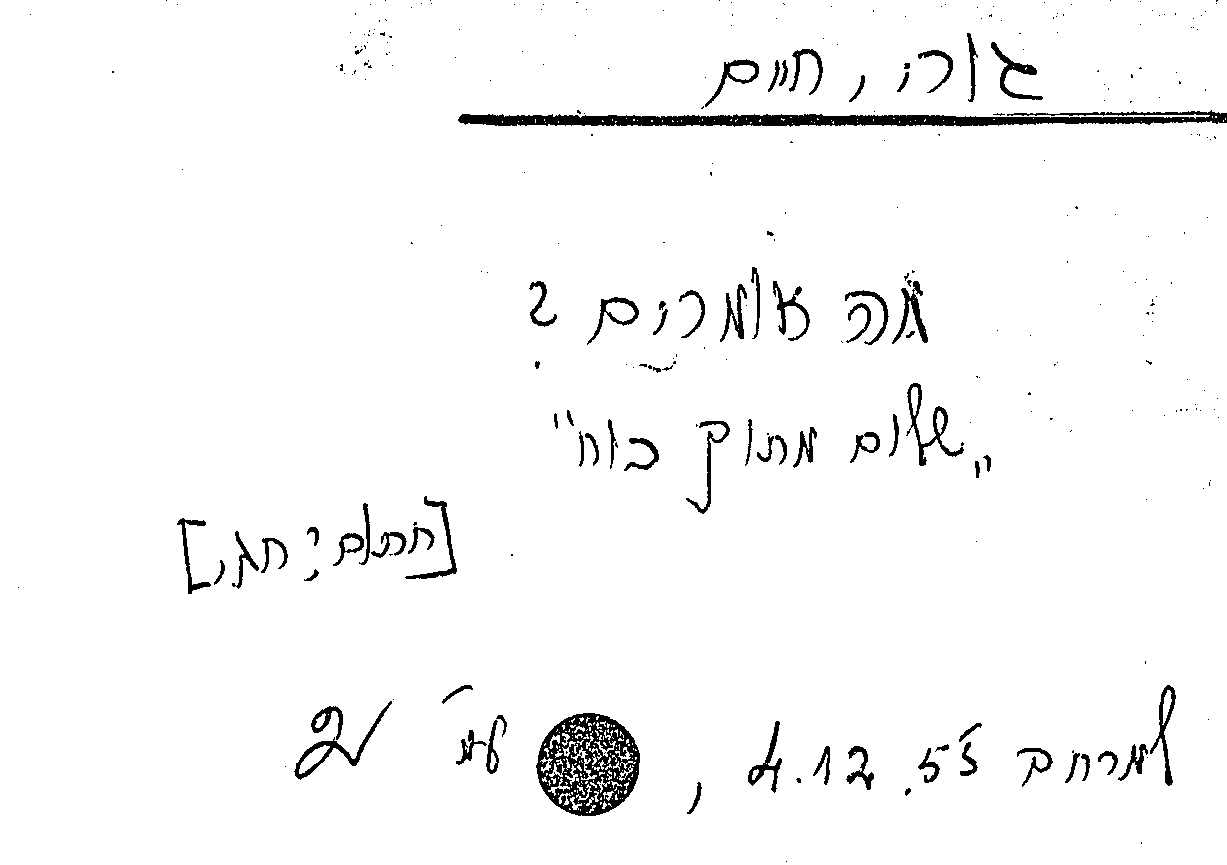 גורי, חיים
מה אומרים?
"שלום מתוך כוח"
[חתום: חג.]
למרחב 4.12.55, עמ' 2